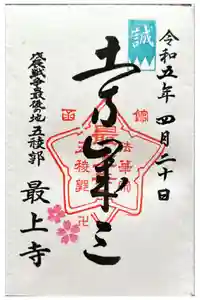 令和五年 四月二十日
誠
土方歳三
戊辰戦争最後の地 五稜郭
最上寺
函
館
最
法華
五稜郭
卍